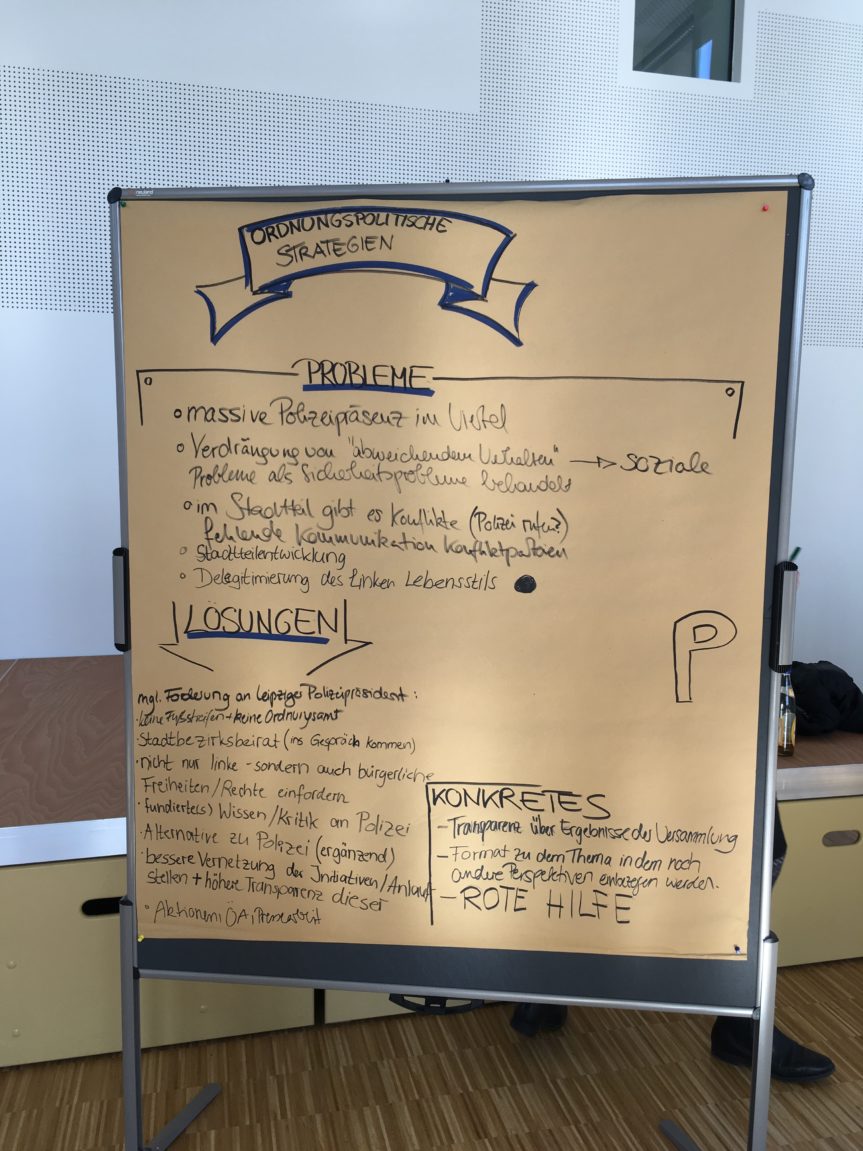 ORDNUNGSPOLITISCHE
STRATEGIEN
PROBLEME
massive Polizeipräsenz im Viertel
Verdrängung von "abweichendem Verhalten" → soziale
Probleme als Sicherheitsprobleme behandelt
im Stadtteil gibt es Konflikte (Polizei rufen?)
fehlende Kommunikation Konfliktparteien
Stadtteilentwicklung
Delegitimierung des linken Lebensstils
LÖSUNGEN
P
mgl. Forderung an Leipziger Polizeipräsident:
keine Fußstreifen + keine Ordnungsamt
Stadtbezirksbeirat (ins Gespräch kommen)
nicht nur linke - sondern auch bürgerliche
Freiheiten/Rechte einfordern
fundierte(s) Wissen/Kritik an Polizei
Alternative zu Polizei (ergänzend)
bessere Vernetzung der Initiativen/Anlauf
stellen + höhere Transparenz dieser
Aktionen, ÖA, Pressearbeit
KONKRETES
- Transparenz über Ergebnisse der Versammlung
- Format zu dem Thema in dem noch
andere Perspektiven einbezogen werden.
- ROTE HILFE